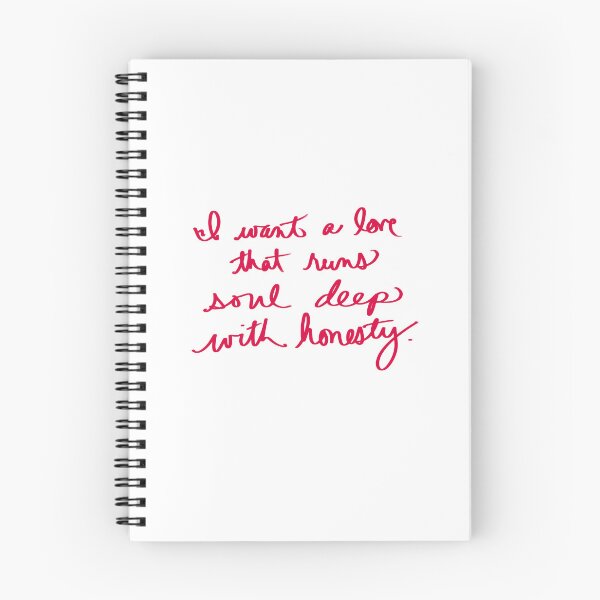 I want a love
that runs
soul deep
with honesty.